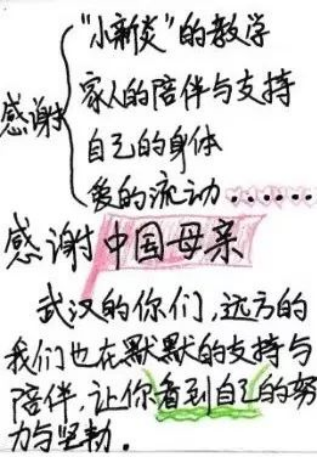 感谢
"小新炎"的教学
家人的陪伴与支持
自己的身体
爱的流动......
感谢中国母亲
武汉的你们,远方的
我们也在默默的支持与
陪伴,让你看到自己的努
力与坚韧.